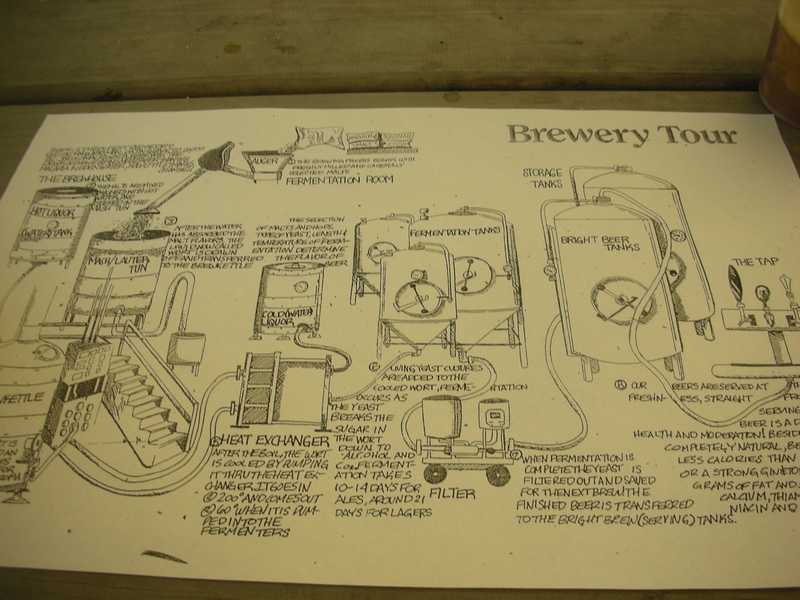 Brewery Tour
THE BREWHOUSE
HOT LIQUOR
WATER TANK
AUGER
① THE BREWING PROCESS BEGINS WITH
FRESHLY MILLED AND CAREFULLY
SELECTED MALTS
FERMENTATION ROOM
MASH/LAUTER
TUN
③ AFTER THE WATER
HAS ABSORBED THE
MALT FLAVORS, THE
LIQUID NOW CALLED
WORT IS DRAWN
OFF AND TRANSFERRED
TO THE BREWKETTLE
THE SELECTION
OF MALTS AND HOPS,
TYPE OF YEAST, LENGTH &
TEMPERATURE OF FERM-
ENTATION DETERMINE
THE FLAVOR OF
BEER
COLD WATER
LIQUOR
FERMENTATION TANKS
STORAGE
TANKS
BRIGHT BEER
TANKS
THE TAP
KETTLE
HEAT EXCHANGER
AFTER THE BOIL, THE WORT
IS COOLED BY PUMPING
IT THRU THE HEAT EX-
CHANGER. IT GOES IN
@ 200° AND COMES OUT
@ 60° WHEN IT IS PUM-
PED INTO THE
FERMENTERS
LIVING YEAST CULTURES
ARE ADDED TO THE
COOLED WORT, FERME- NTATION
OCCURS AS
THE YEAST
BREAKS THE
SUGAR IN
THE WORT
DOWN TO
ALCOHOL AND
CO₂ FERMENT-
ATION TAKES
10-14 DAYS FOR
ALES, AROUND 21
DAYS FOR LAGERS
FILTER
⑦ WHEN FERMENTATION IS
COMPLETE THE YEAST IS
FILTERED OUT AND SAVED
FOR THE NEXT BREW. THE
FINISHED BEER IS TRANSFERRED
TO THE BRIGHT BREW (SERVING) TANKS.
⑧ OUR BEERS ARE SERVED AT
FRESHN- ESS, STRAIGHT
SERVING
BEER IS A
HEALTH AND MODERATION! BESID
COMPLETELY NATURAL, BE
LESS CALORIES THAN
OR A STRONG GIN & TON
GRAMS OF FAT AND
CALCIUM, THIAM
NIACIN AND